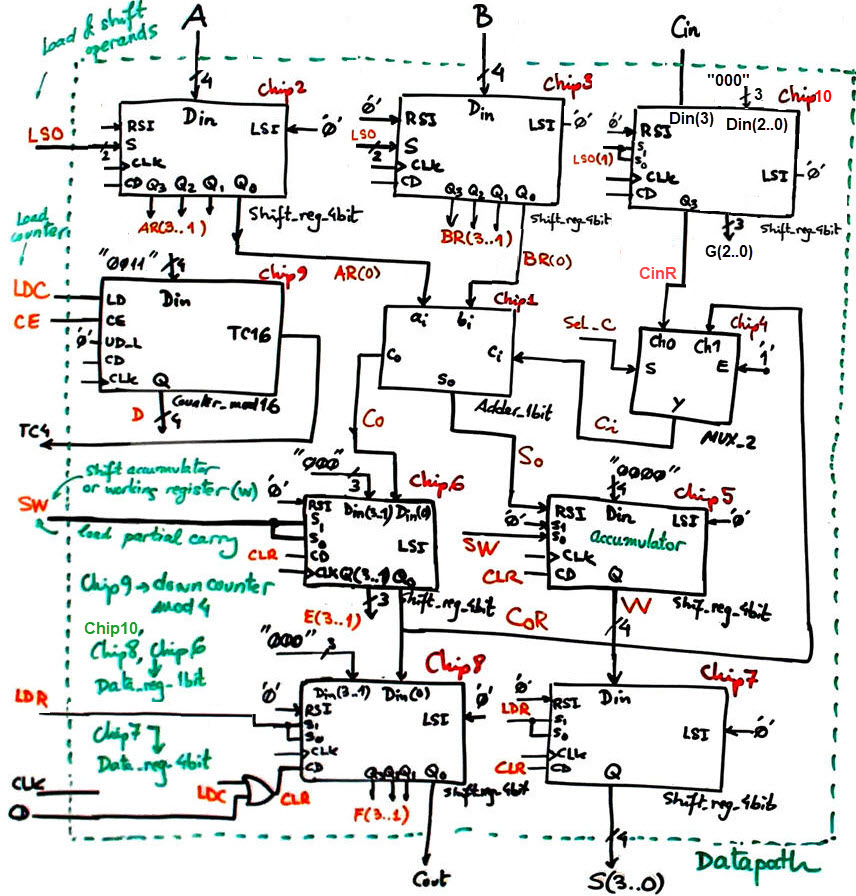 Load & shift
operands
A
B
Cin
4
4
"000"
3
Chip2
Chip3
Chip10
Din
RSI
LSI
'0'
LSO
S
2
CLK
CD
Q3 Q2 Q1 Q0
Shift_reg_4bit
AR(3..1)
AR(0)
'0'
Din
RSI
LSI
'0'
LSO
S
2
CLK
CD
Q3 Q2 Q1 Q0
Shift_reg_4bit
BR(3..1)
BR(0)
Din(3)
Din(2..0)
'0'
RSI
S1
S0
LSO(1)
CLK
CD
LSI
'0'
Q3
3
G(2..0)
Shift_reg_4bit
CinR
Load
counter
"0011"
4
Chip9
Din
LDC
LD
CE
CE
'0'
UD_L
CD
CLK
TC16
Q
Counter_mod16
D
4
TC4
Chip1
ai
bi
Co
Ci
So
Adder_1bit
Sel_C
Chip4
Ch0
Ch1
S
E
'1'
Y
MUX_2
Ci
Co
So
shift accumulator
or working register (w)
SW
load partial carry
"000"
3
Chip6
'0'
RSI
Din(3..1)
Din(0)
S1
S0
LSI
CLR
CD
CLK
Q(3..1)
Q0
Shift_reg_4bit
3
E(3..1)
"0000"
4
Chip5
RSI
Din
LSI
'0'
'0'
S1
S0
accumulator
SW
CLK
CLR
CD
Q
Shif_reg_4bit
W
4
CoR
Chip9 → down counter
mod 4
Chip10,
Chip8, Chip6
Data_reg_1bit
Chip7
Data_reg_4bit
"000"
3
Chip8
Din(3..1)
Din(0)
'0'
RSI
LSI
'0'
LDR
S1
S0
CLK
CD
Q3 Q2 Q1 Q0
Shift_reg_4bit
F(3..1)
Cout
Chip7
Din
'0'
RSI
LDR
S1
S0
LSI
'0'
CLK
CLR
CD
Q
Shift_reg_4bit
4
S(3..0)
CLK
CD
LDC
CLR
Datapath